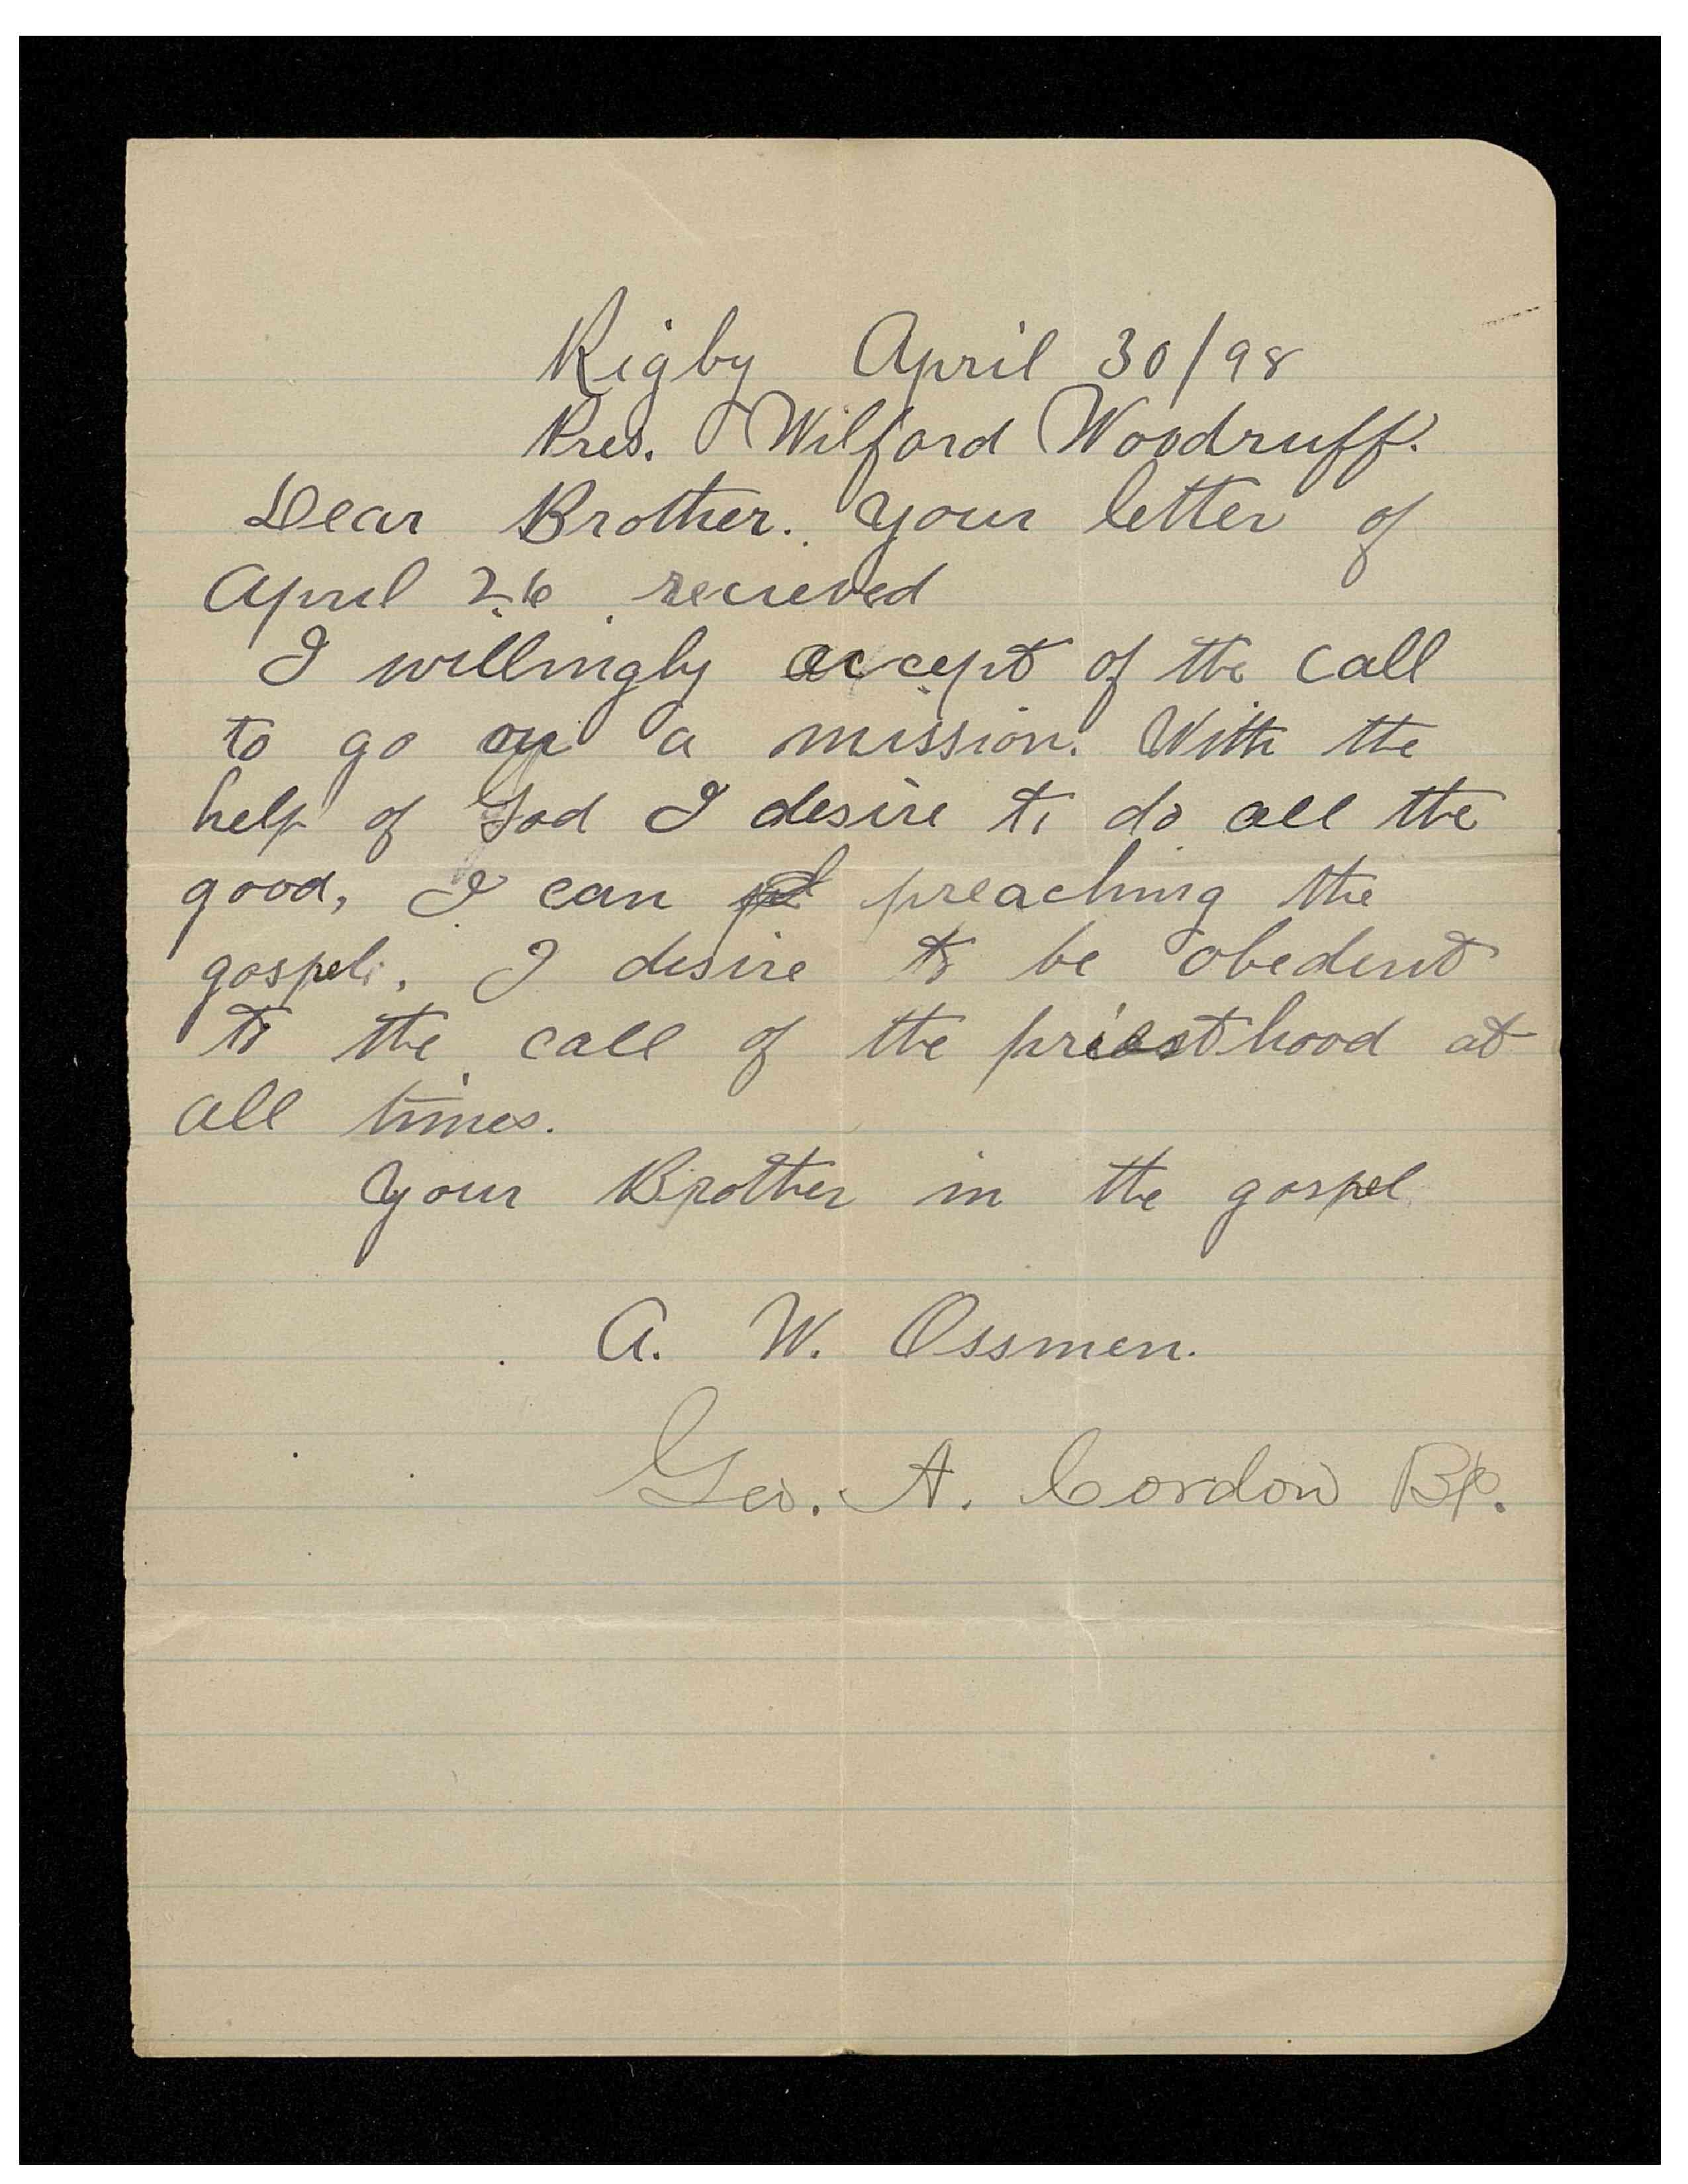 Rigby April 30/98
Pres. Wilford Woodruff.
Dear Brother. Your letter of
April 26 recieved
I willingly accept of the call
to go on a mission. With the
help of God I desire to do all the
good, I can preaching the
gospel. I desire to be obedent
to the call of the priesthood at
all times.
Your Brother in the gospel
A. W. Ossmen.
Geo. A. Cordon Bp.